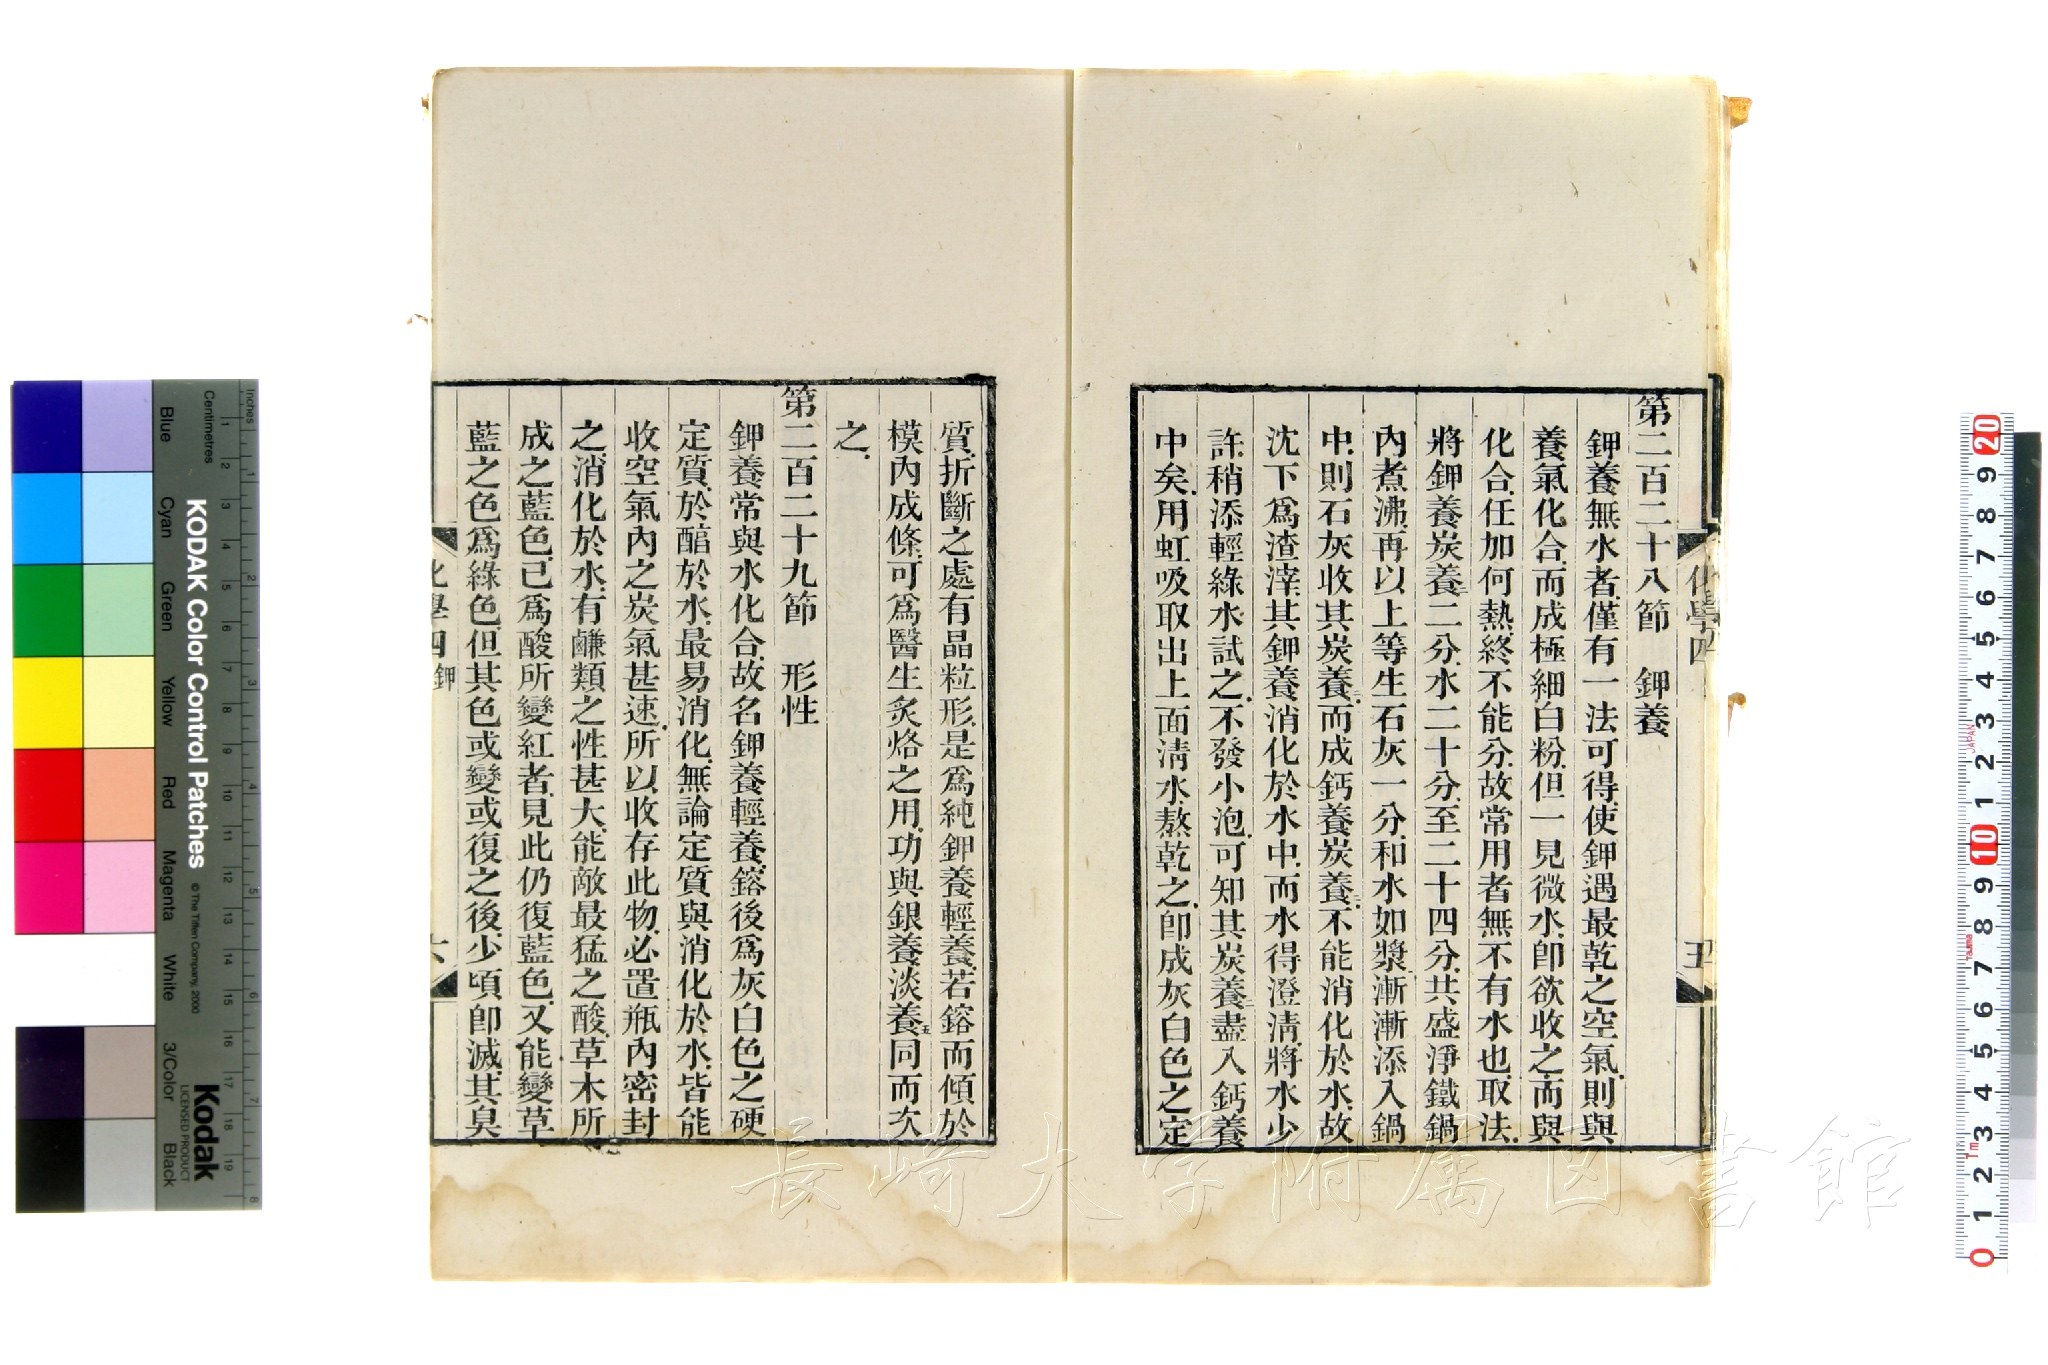 化學四
五
第二百二十八節　鉀養
鉀養無水者僅有一法可得使鉀遇最乾之空氣則與
養氣化合而成極細白粉但一見微水卽欲收之而與
化合任加何熱終不能分故常用者無不有水也取法
將鉀養炭養二二分水二十分至二十四分共盛淨鐵鍋
內煮沸再以上等生石灰一分和水如漿漸漸添入鍋
中則石灰收其炭養二而成鈣養炭養二不能消化於水故
沈下爲渣滓其鉀養消化於水中而水得澄淸將水少
許稍添輕綠水試之不發小泡可知其炭養二盡入鈣養
中矣用虹吸取出上面淸水熬乾之卽成灰白色之定
質折斷之處有晶粒形是爲純鉀養輕養若鎔而傾於
模內成條可爲醫生炙烙之用功與銀養淡養五同而次
之
第二百二十九節　形性
鉀養常與水化合故名鉀養輕養鎔後爲灰白色之硬
定質於醕於水最易消化無論定質與消化於水皆能
收空氣內之炭氣甚速所以收存此物必置瓶內密封
之消化於水有鹻類之性甚大能敵最猛之酸草木所
成之藍色已爲酸所變紅者見此仍復藍色又能變草
藍之色爲綠色但其色或變或復之後少頃卽滅其臭
化學四 鉀
六
長崎大学附属図書館
KODAK Color Control Patches
©The Tiffen Company, 2000
Kodak
LICENSED PRODUCT
Inches
Centimetres
Blue
Cyan
Green
Yellow
Red
Magenta
White
3/Color
Black
1 2 3 4 5 6 7 8 9 10 11 12 13 14 15 16 17 18 19
1 2 3 4 5 6 7 8
0 1 2 3 4 5 6 7 8 9 10 1 2 3 4 5 6 7 8 9 20